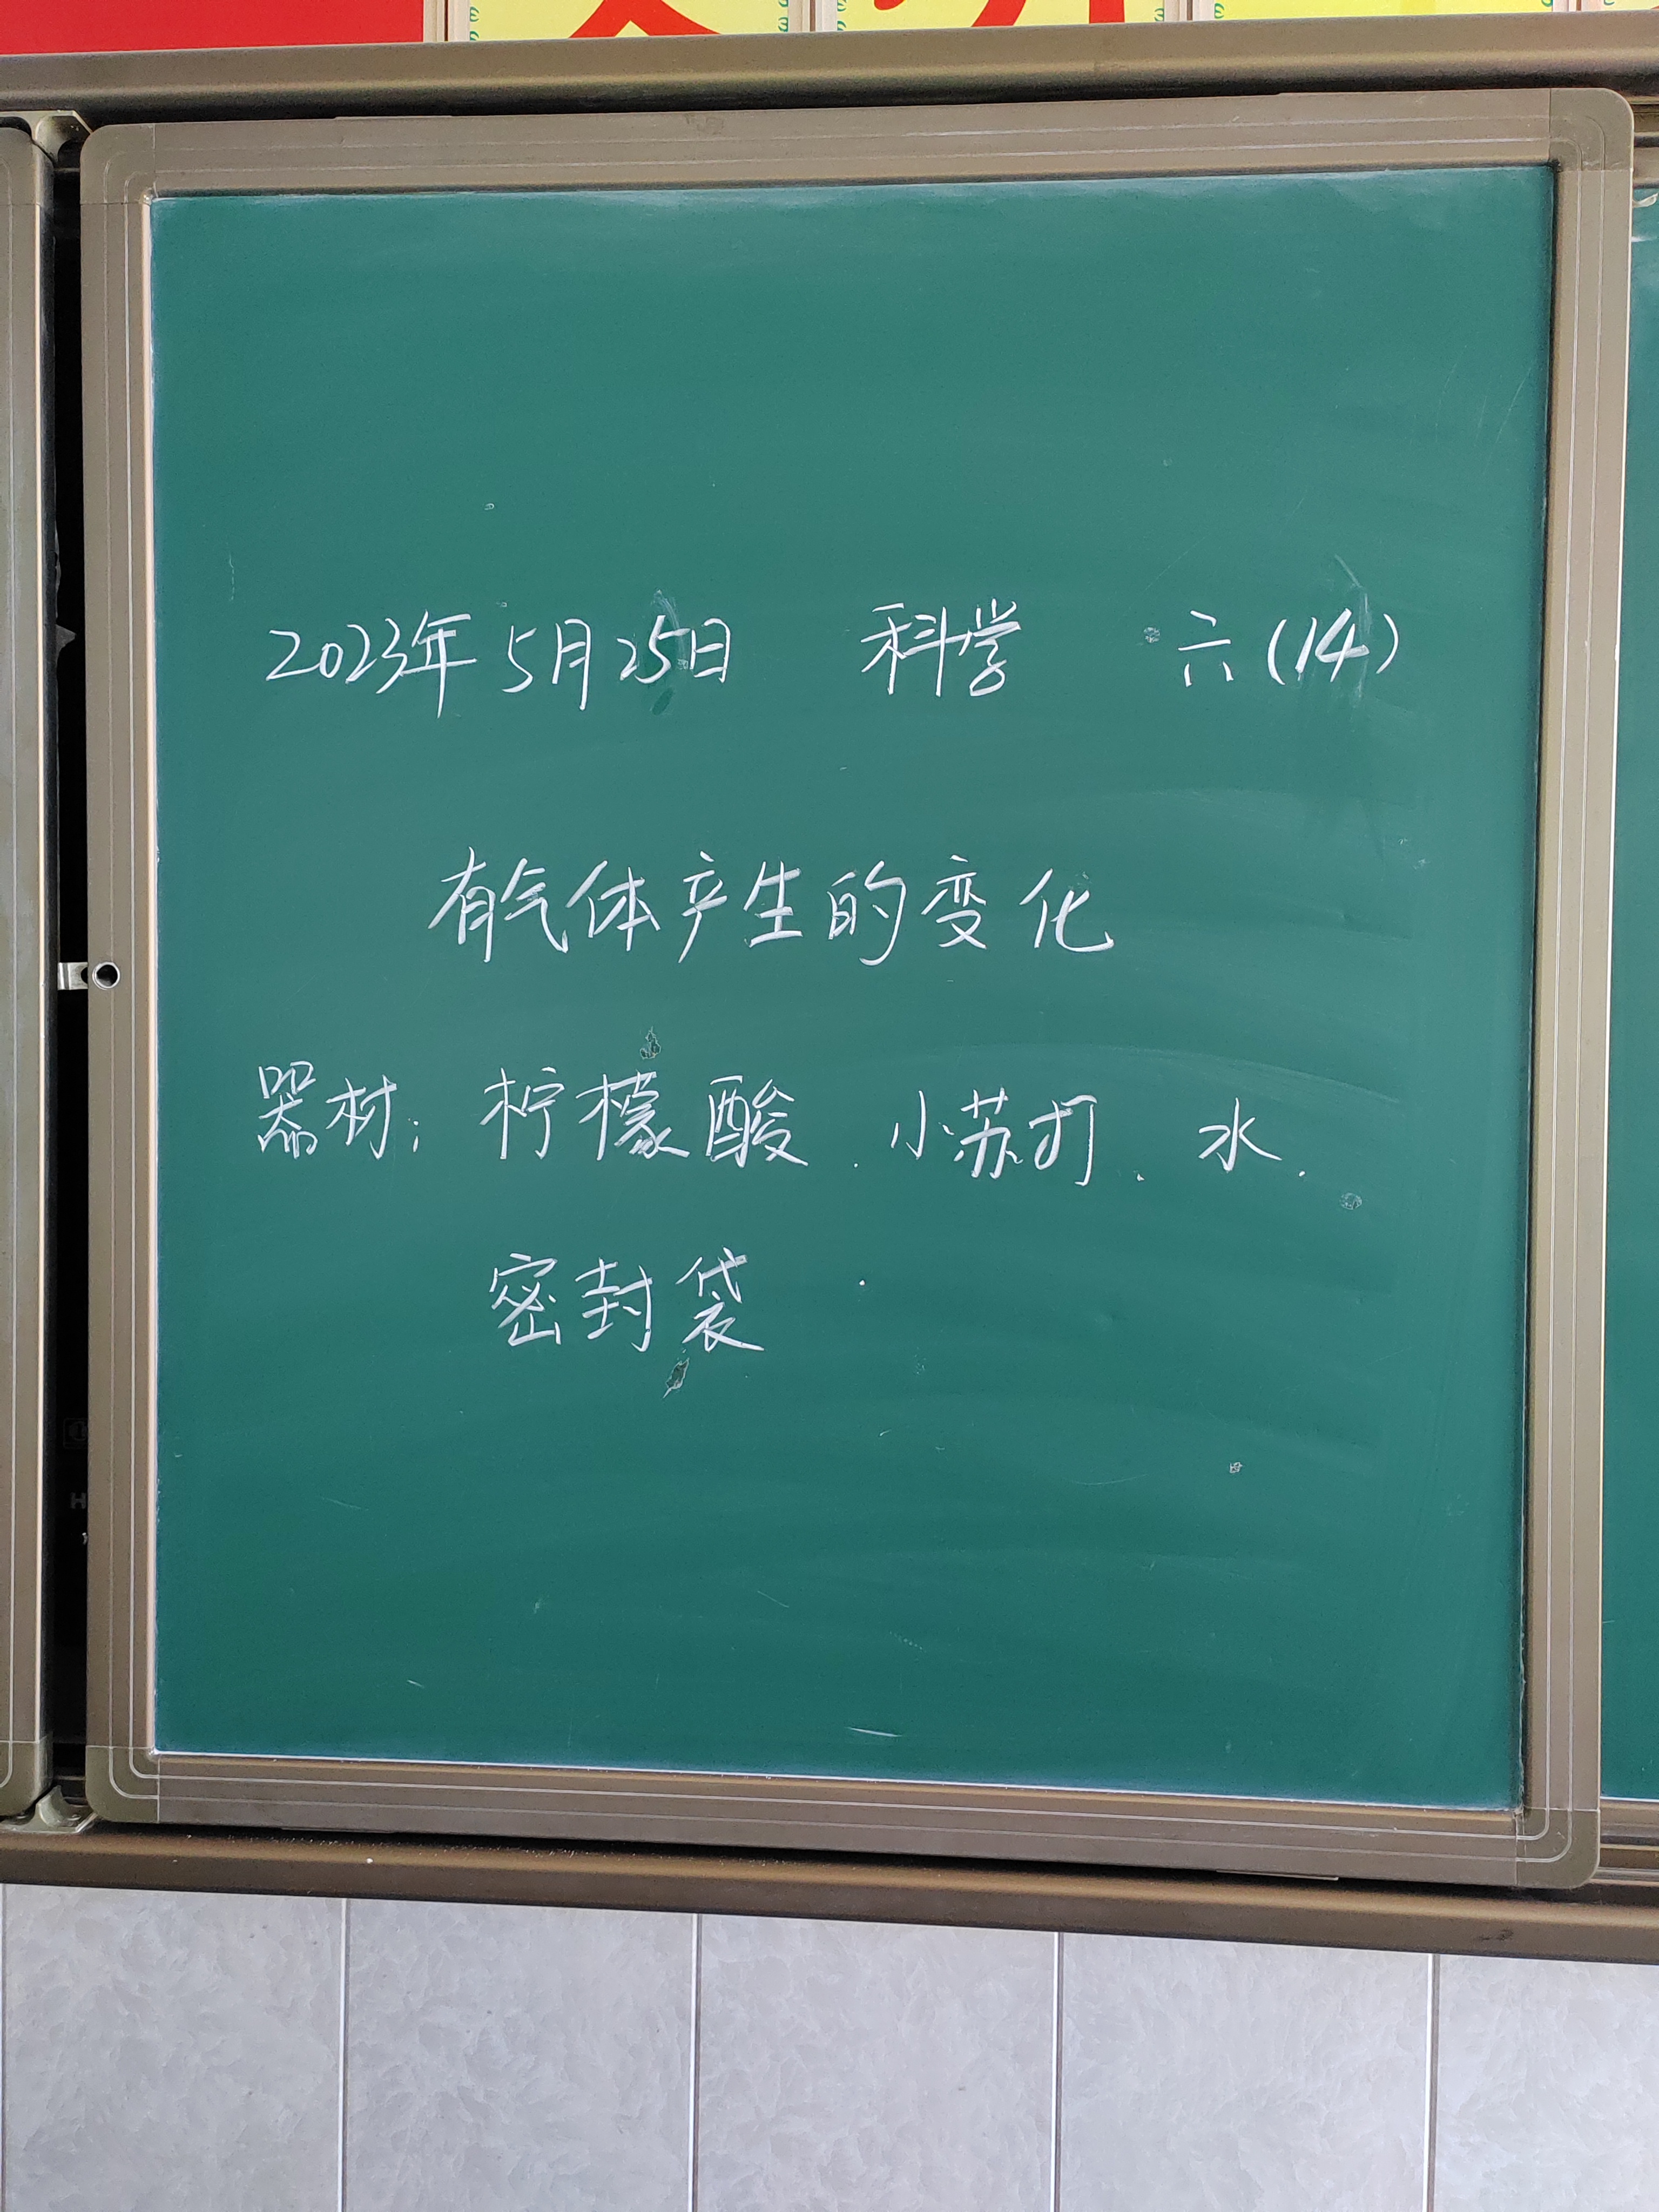 2023年5月25日 科学 六(14)
有气体产生的变化
器材：柠檬酸、小苏打、水、
密封袋